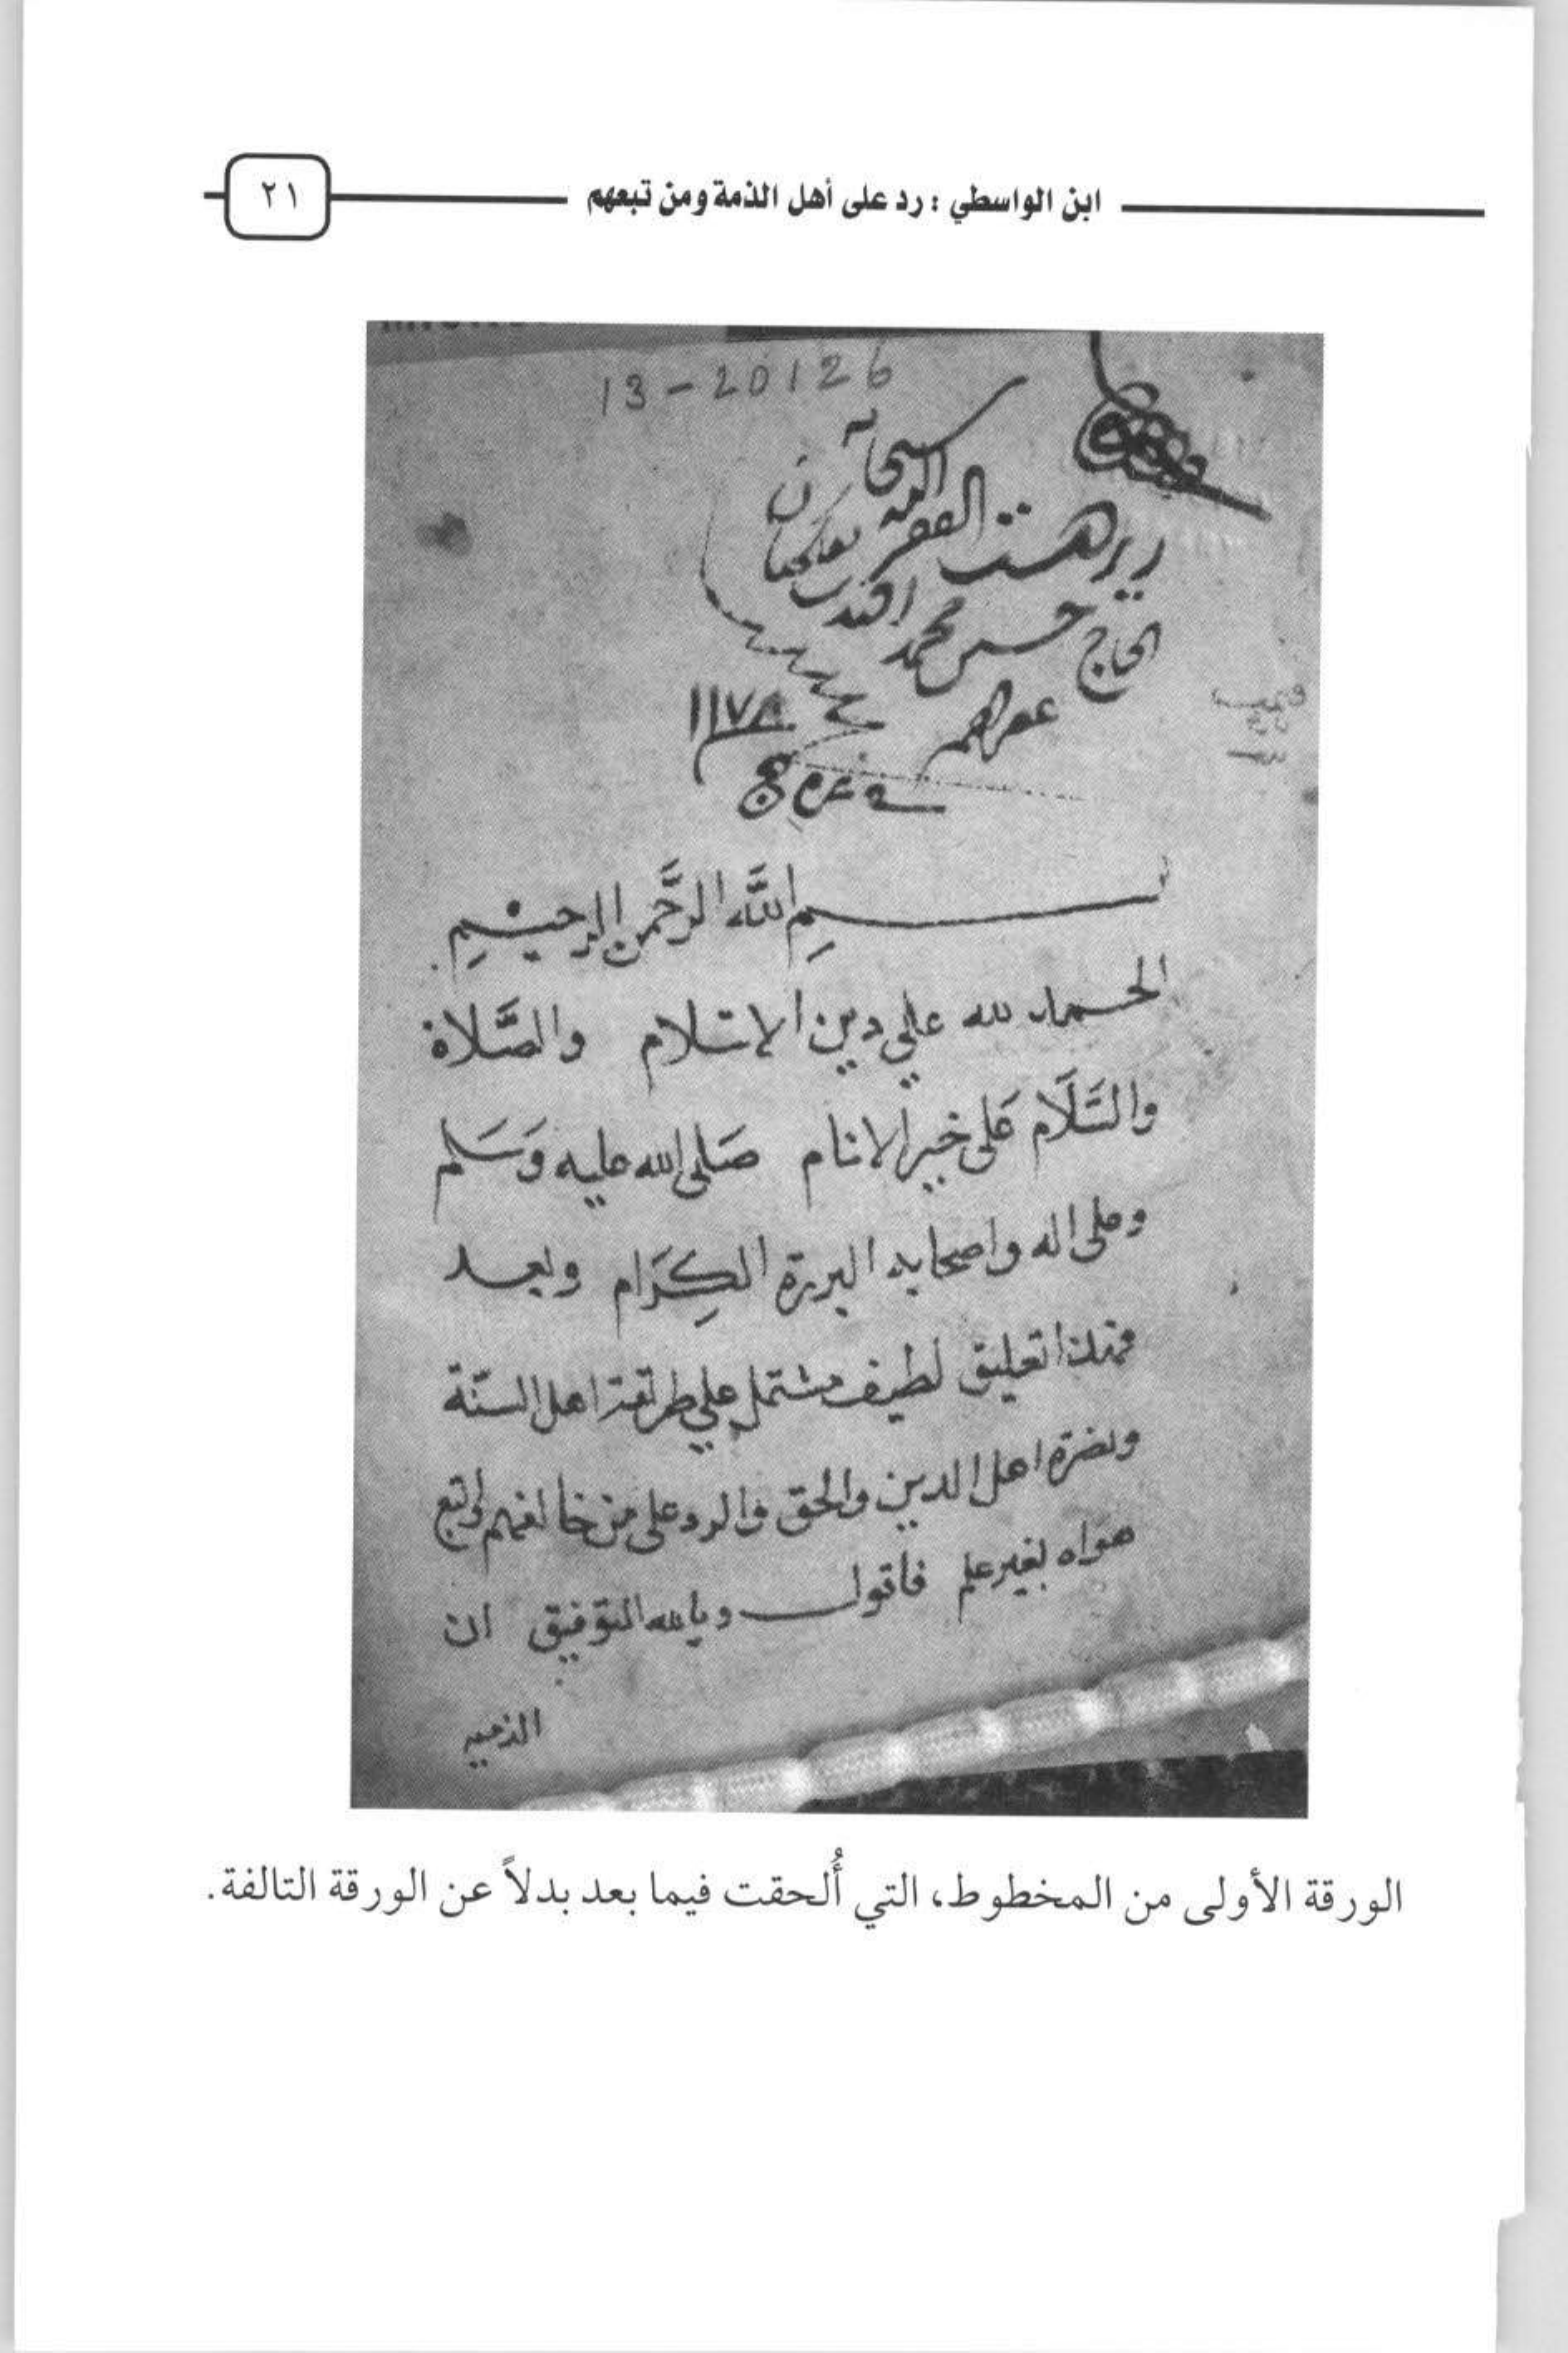 ابن الواسطي : رد على أهل الذمة ومن تبعهم
٢١
13-20126
سبحانه
الله
الفقير
الحاج حسن محمد افندي
غفر لهم
١١٧٨
بِسمِ اللَّه الرَّحمن الرحيمِ
الحمد لله علي دين الاسلام والصَّلاة
والسَّلَام عَلى خير الانام صَلى الله عليه وَسَلم
وعلى اله واصحابه البررة الكِرَام وبعد
فهذا تعليق لطيف مشتمل علي طريقة اهل السنّة
ونصرة اهل الدين والحق والرد على من خالفهم واتبع
هواه بغير علم فأقول وبالله التوفيق ان
الورقة الأولى من المخطوط، التي أُلحقت فيما بعد بدلاً عن الورقة التالفة.